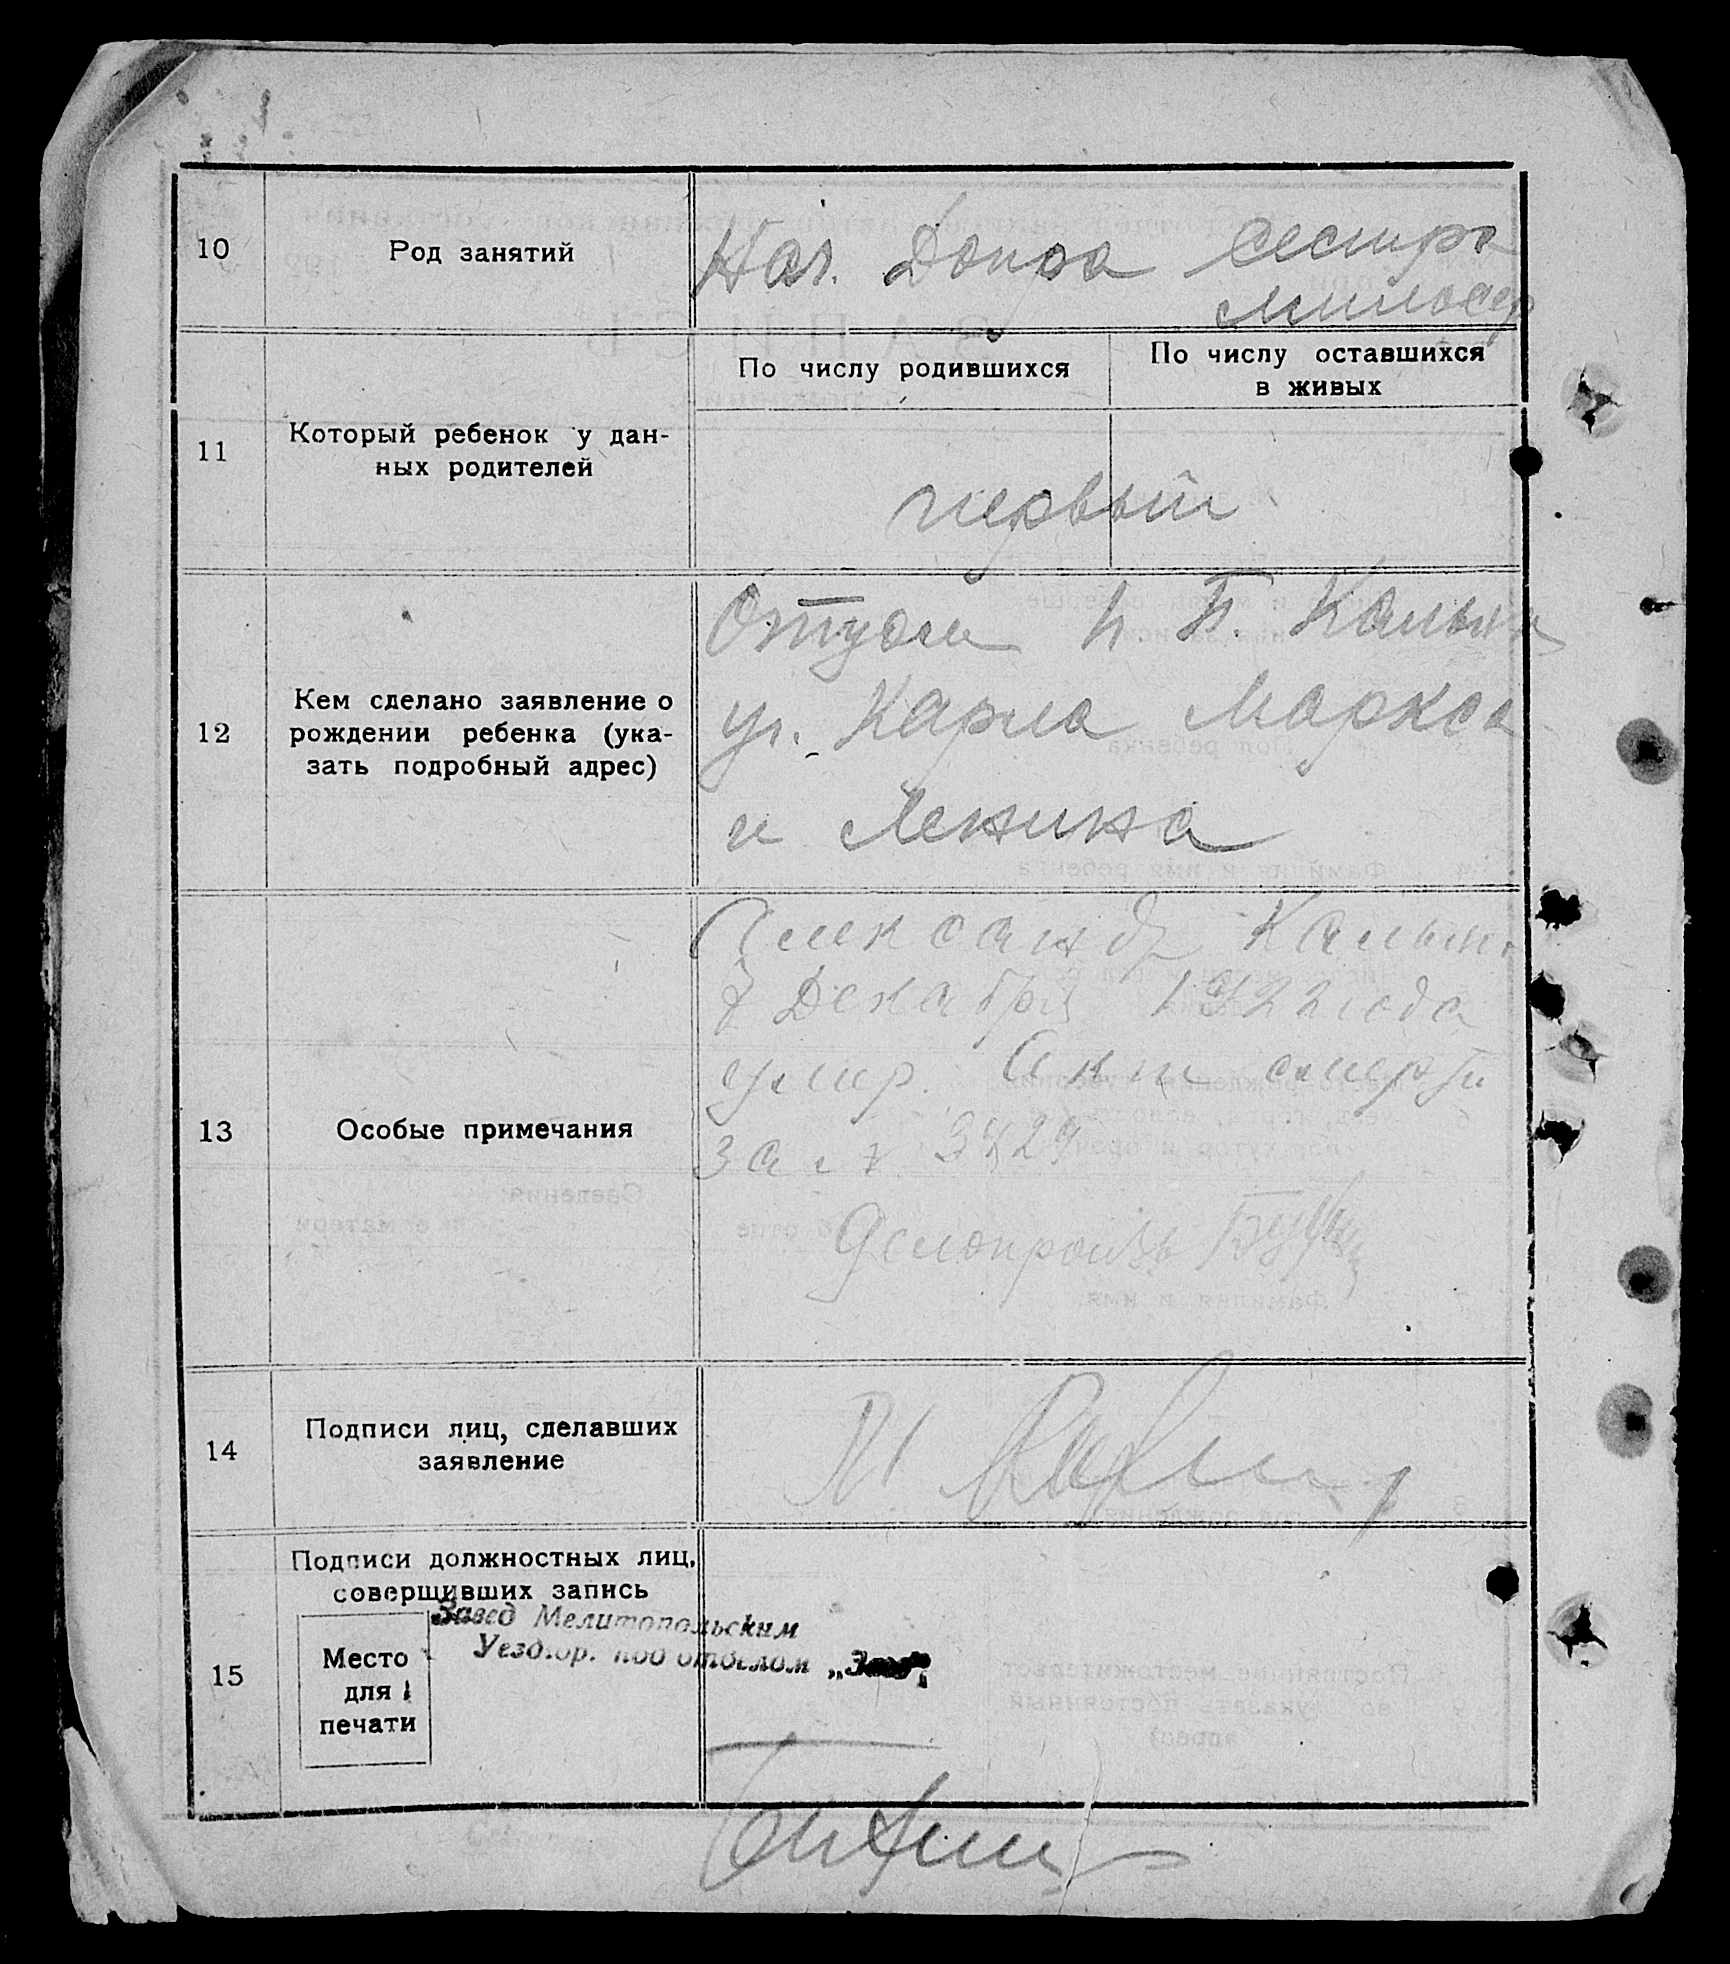 10 Род занятий Нач. Допра Сестра
милосер
По числу родившихся
По числу оставшихся
в живых
11 Который ребенок у дан-
ных родителей
первый
12 Кем сделано заявление о
рождении ребенка (ука-
зать подробный адрес)
Отцом
ул. Карла Маркса
и Ленина
13 Особые примечания
Александр
Декабря 1922 года
умер. Акт смерти
за №
Делопроизв
14 Подписи лиц, сделавших
заявление
15 Подписи должностных лиц,
совершивших запись
Завед Мелитопольским
Уездгор. подотделом „Загс“
Место
для
печати